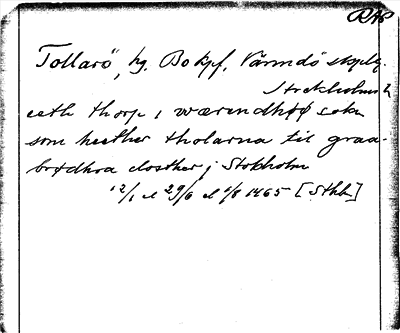 RAP
Tollarö, hg. Bo kpf, Värmdö skplg.
Stockholms l.
eeth thorp i wærendhøø sokn
som heether tholarna til graa-
brødhra closther j Stokholm
12/1 el 29/6 el 1/8 1465 [Sthlm]